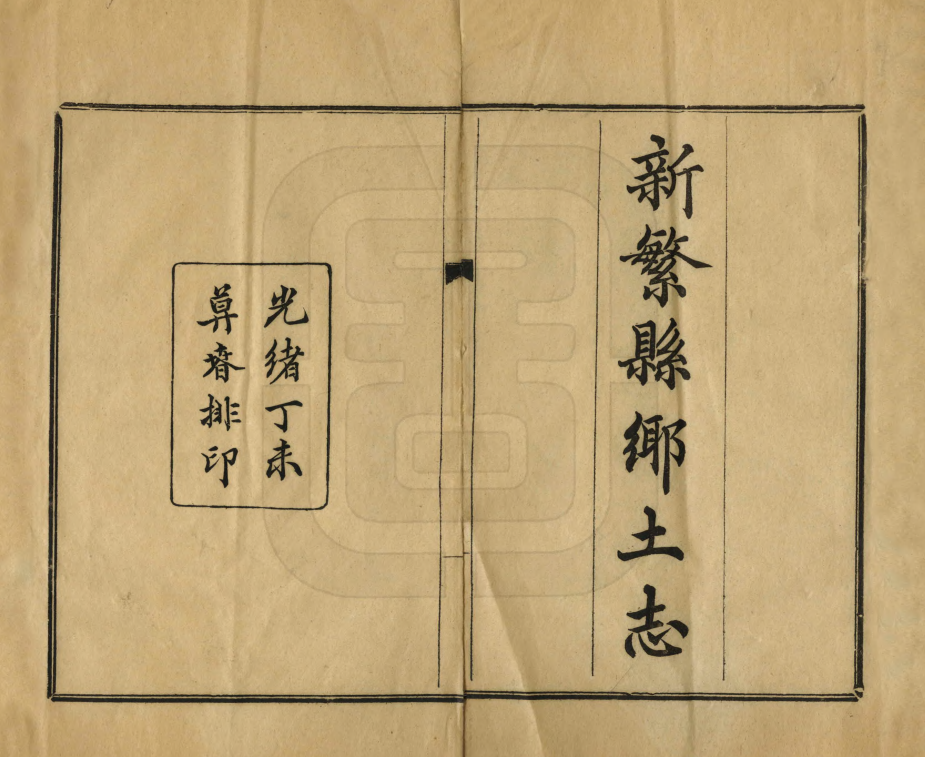 新繁縣鄉土志
光緒丁未
算㫪排印